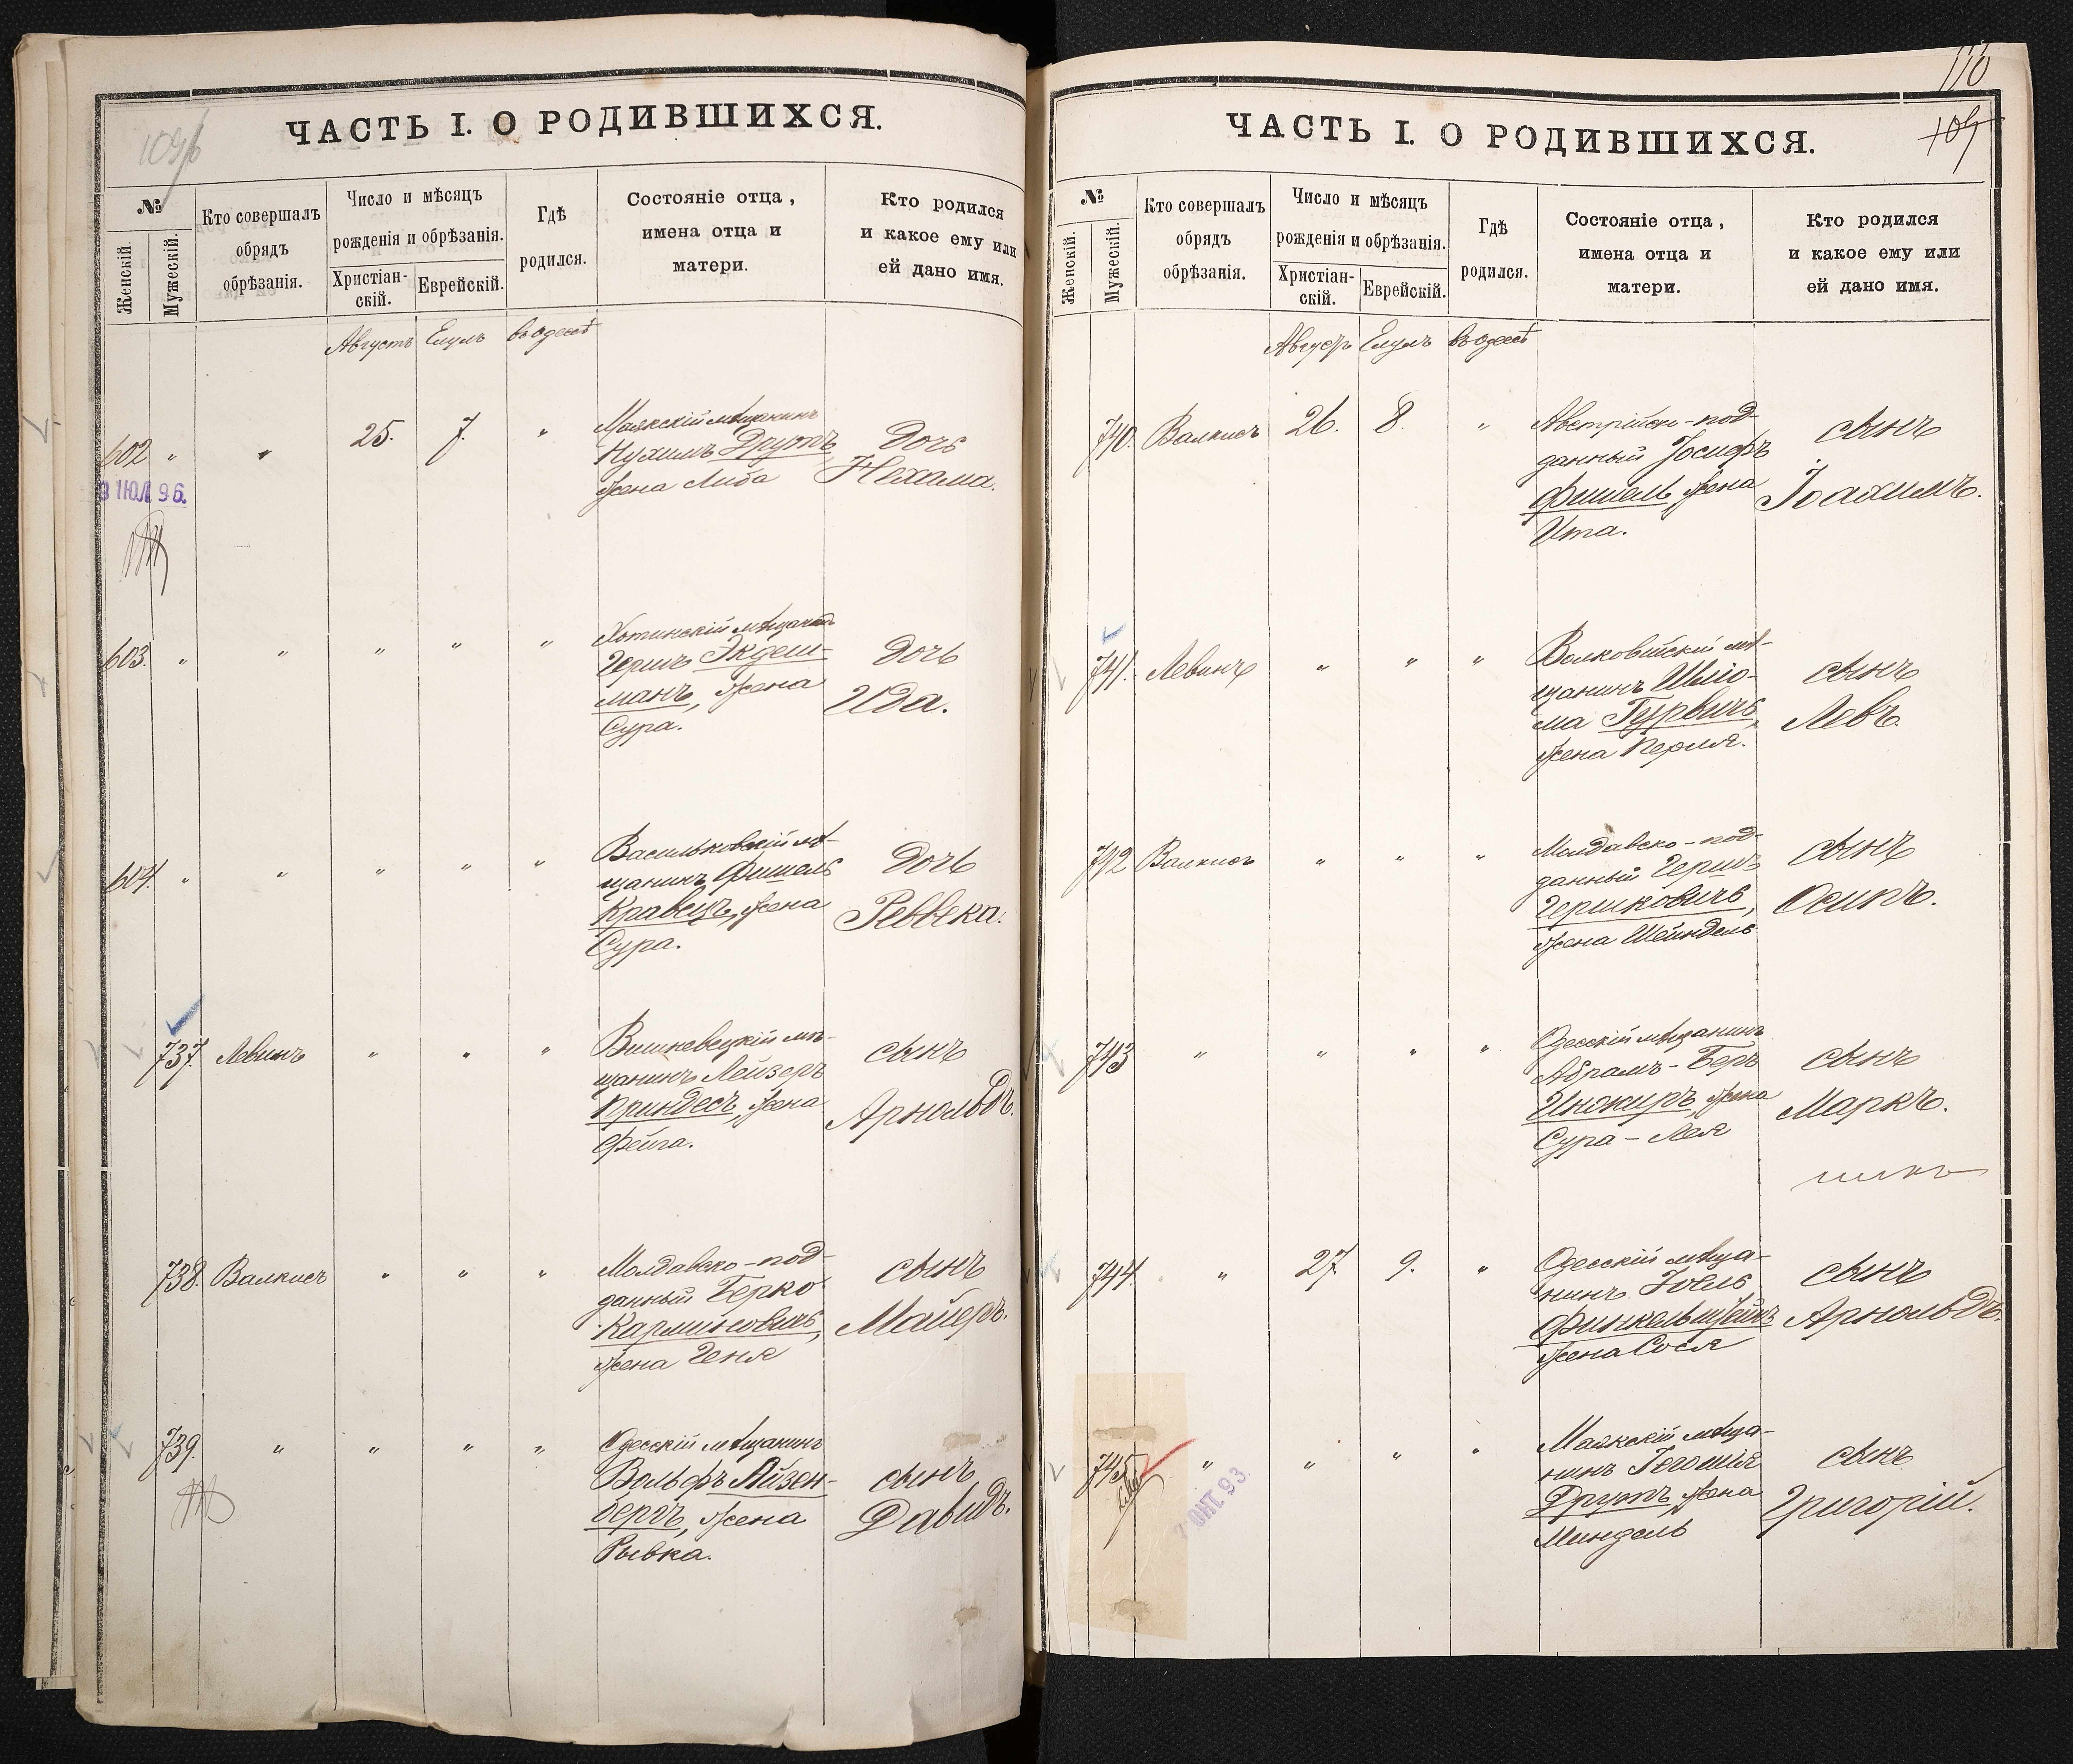 109б
ЧАСТЬ I. О РОДИВШИХСЯ.
№
Женскій.
Мужескій.
Кто совершалъ
обрядъ
обрѣзанія.
Число и мѣсяцъ
рожденія и обрѣзанія.
Христіан-
скій.
Еврейскій.
Гдѣ
родился.
Состояніе отца,
имена отца и
матери.
Кто родился
и какое ему или
ей дано имя.
Августъ Елулъ въ Одессѣ
602 " " 25. 7. "
Маякскій мѣщанинъ
Нухимъ Друтъ,
жена Либа
Дочь
Нехама.
3 ІЮЛ 96.
603. " " " " "
Хотинскій мѣщанинъ
Гершъ Экдеш-
манъ, жена
Сура.
Дочь
Ида.
604. " " " " "
Васильковскій мѣ-
щанинъ Фишель
Кравецъ, жена
Сура.
Дочь
Ревека.
737. Левинъ " " "
Вишневецкій мѣ-
щанинъ Лейзеръ
Приндесъ, жена
Фейга.
сынъ
Арнольдъ.
738. Валкисъ " " "
Молдавско-под-
данный Берко
жена Геня
сынъ
Майеръ.
739. " " " "
Одесскій мѣщанинъ
Вольфъ Айзен-
бергъ, жена
Рывка.
сынъ
Давидъ.
110
109
ЧАСТЬ I. О РОДИВШИХСЯ.
№
Женскій.
Мужескій.
Кто совершалъ
обрядъ
обрѣзанія.
Число и мѣсяцъ
рожденія и обрѣзанія.
Христіан-
скій.
Еврейскій.
Гдѣ
родился.
Состояніе отца,
имена отца и
матери.
Кто родился
и какое ему или
ей дано имя.
Августъ Елулъ въ Одессѣ
740. Валкисъ 26. 8. "
Австрійско-под-
данный Іосифъ
Фишель, жена
Ита.
сынъ
Іоахимъ.
741. Левинъ " " "
Волковійскій мѣ-
щанинъ Шліо-
ма Гурвичъ,
жена Перля.
сынъ
Левъ.
742 Валкисъ " " "
Молдавско-под-
данный Гершъ
Гершковичъ,
жена Шейндель
сынъ
Осипъ.
743 " " " "
Одесскій мѣщанинъ
Абрамъ-Беръ
Инжиръ, жена
Сура-Лея
сынъ
Маркъ.
744. " 27. 9. "
Одесскій мѣща-
нинъ Іоель
Финкельштейнъ
жена Сося
сынъ
Арнольдъ.
745 " " " "
Маякскій мѣща-
нинъ Іегошія
Друтъ, жена
Миндель
сынъ
Григорій.
7 ОКТ. 93.